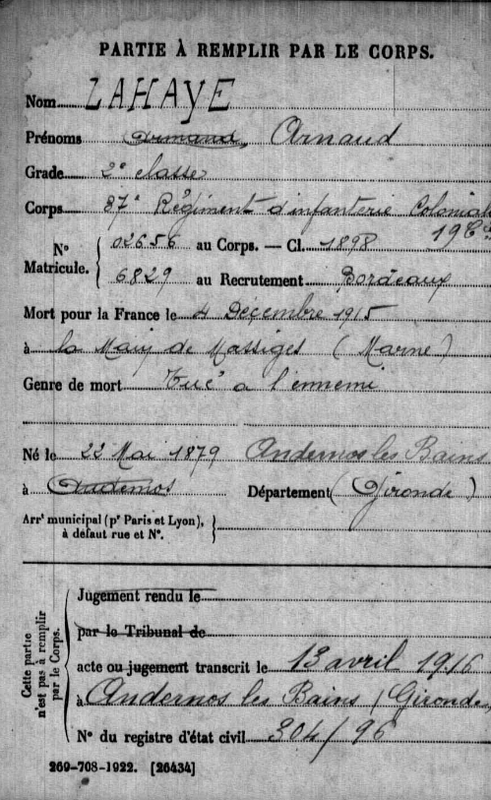 PARTIE À REMPLIR PAR LE CORPS.
Nom LAHAYE
Prénoms Armand, Arnaud
Grade 2e classe
Corps 37e Régiment d'infanterie Coloniale
19e Cie
N° Matricule. { 02656 au Corps. — Cl. 1898
6829 au Recrutement Bordeaux
Mort pour la France le 4 Décembre 1915
à la Main de Massiges (Marne)
Genre de mort Tué à l'ennemi
Né le 22 Mai 1879 Andernos les Bains
à Andernos Département (Gironde)
Arrt municipal (pr Paris et Lyon),
à défaut rue et N°. }
Cette partie n'est pas à remplir par le Corps. {
Jugement rendu le
par le Tribunal de
acte ou jugement transcrit le 13 avril 1916
à Andernos les Bains (Gironde)
N° du registre d'état civil 304/96
269-708-1922. [26434]